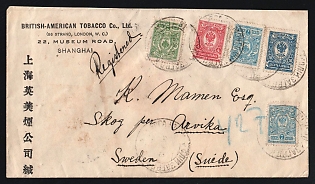 BRITISH-AMERICAN TOBACCO Co., Ltd.
(86 STRAND, LONDON, W.C.)
22, MUSEUM ROAD,
SHANGHAI
Registered
上海英美烟公司緘
K. Mamen Esq.
Skog per Arvika
12 T
Sweden (Suède)